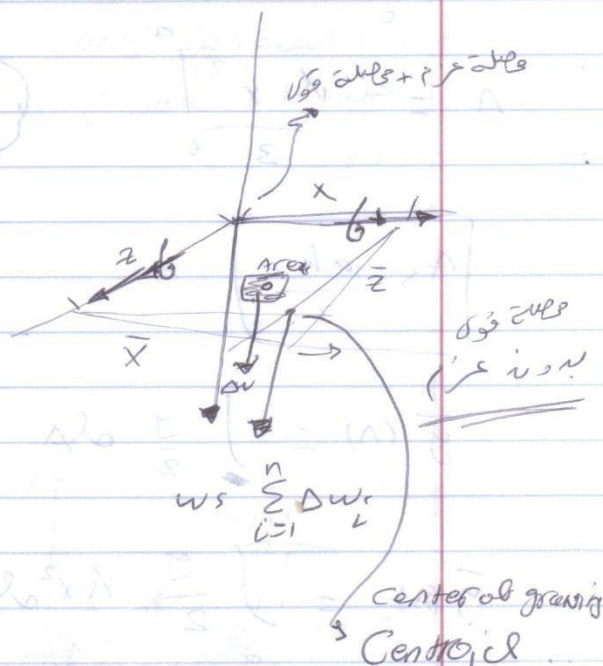 محصلة قوة + محصلة عزم
x
z
Area
z̄
x̄
Δw
محصلة قوة
بدون عزم
n
w = Σ Δwᵢ
i=1
center of graviy
Centroid